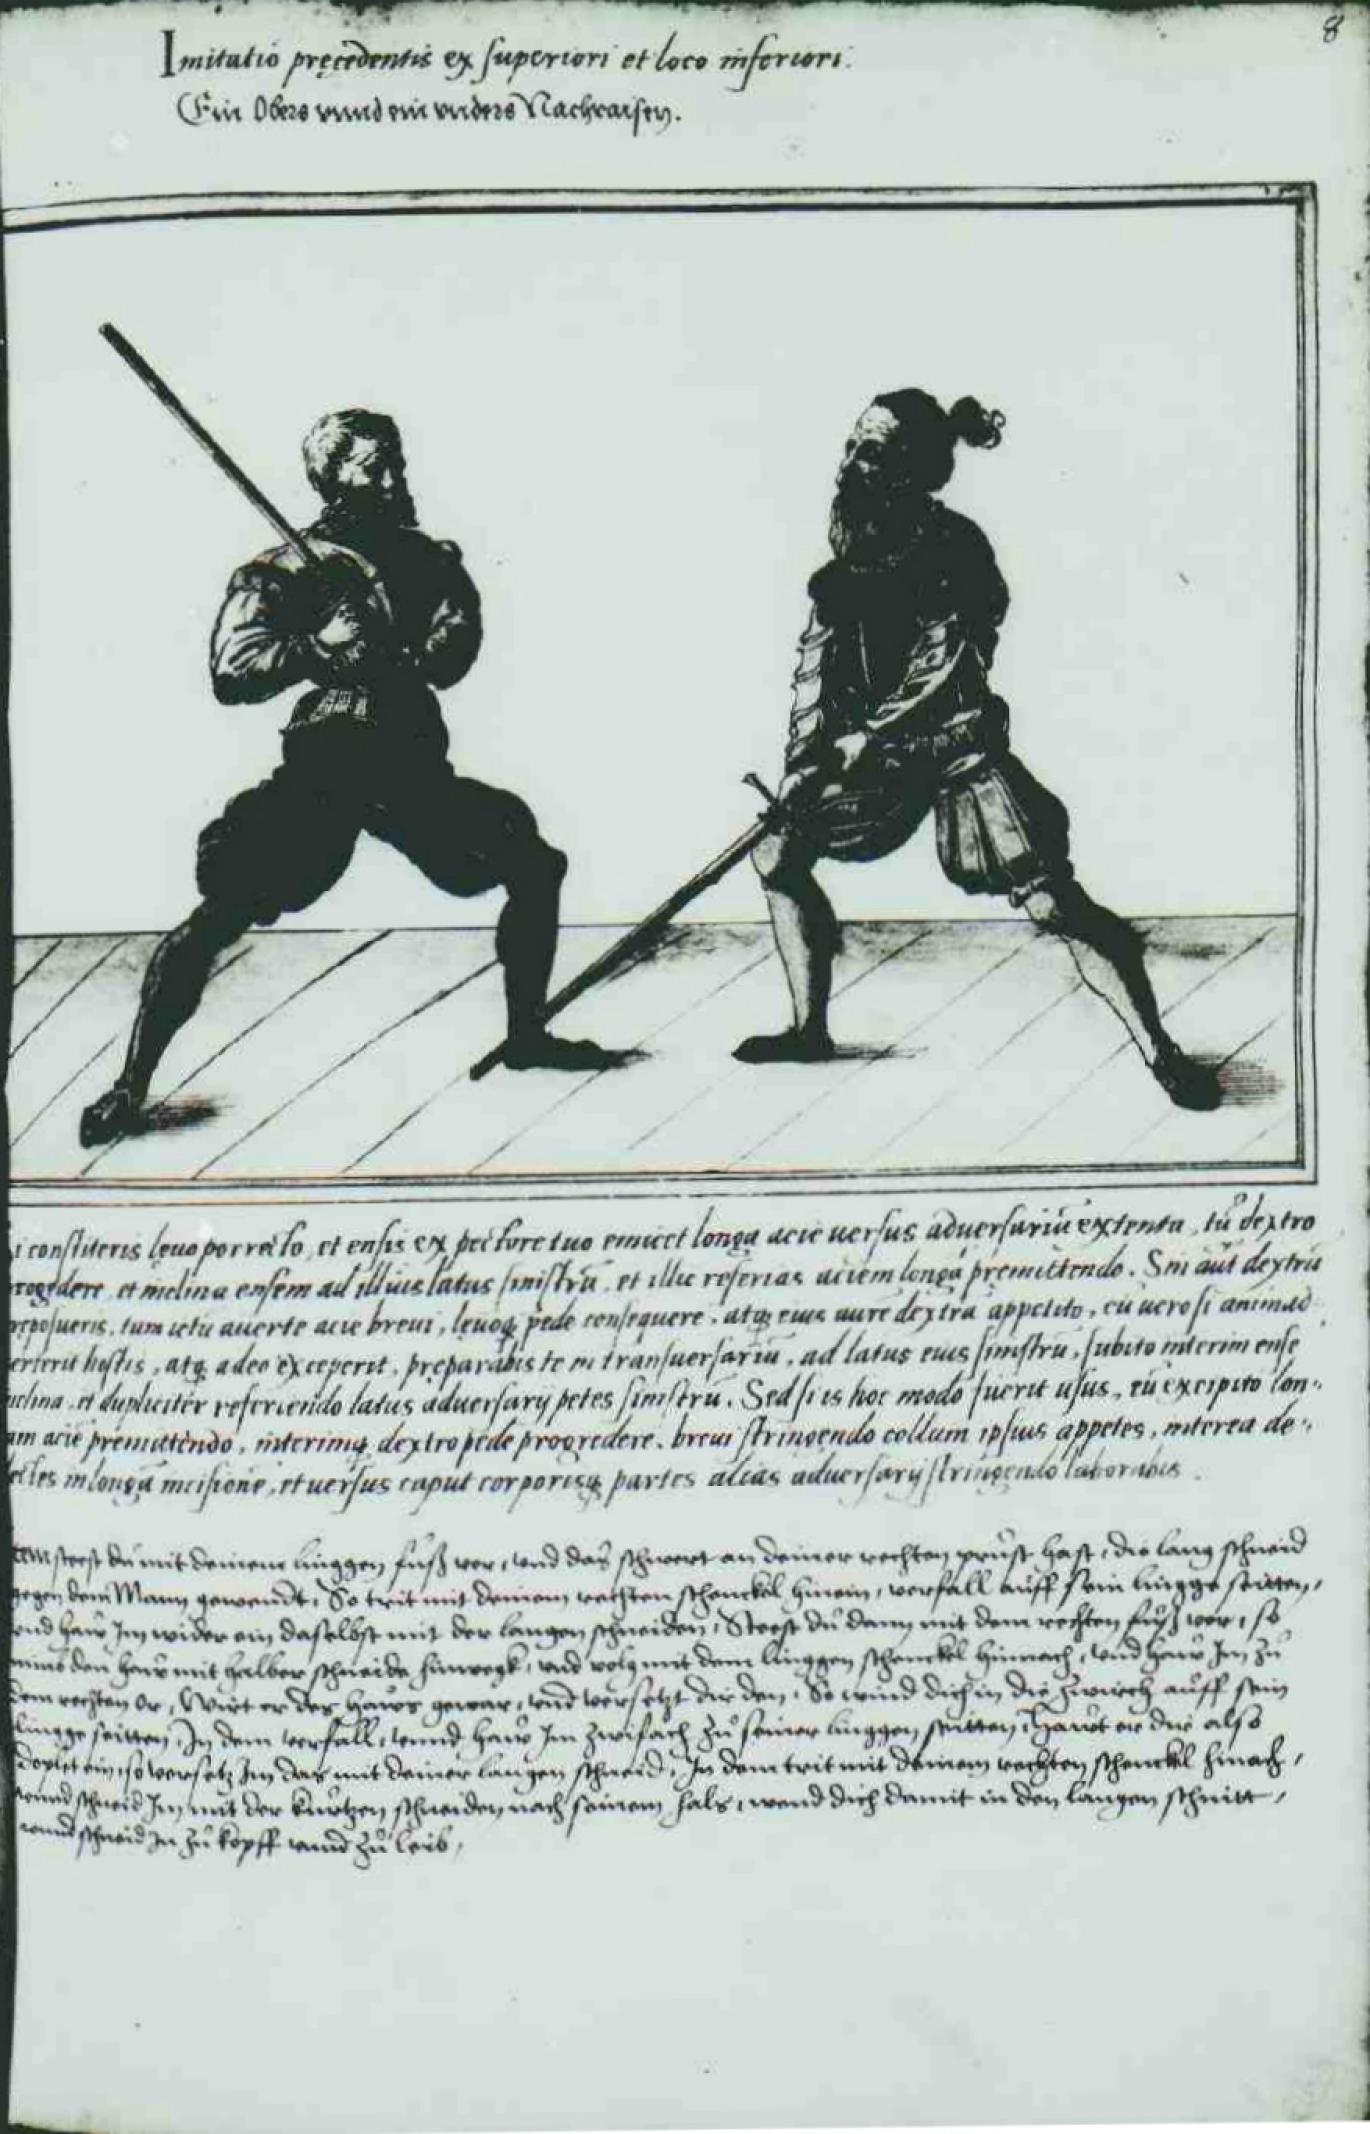 8
Imitatio pręcedentis ex superiori et loco inferiori.
Ein Obers vnnd ein vnders Nachraisen.
i constiteris lęuo porrecto, et ensis ex pectore tuo emicet longa acie uersus aduersariū extenta, tū dextro
rogedere et inclina ensem ad illius latus sinistrū, et illic referias aciem longā premittendo. Sin aūt dextrū
reposueris, tum ictū auerte acie breui, lęuoq; pede consequere, atq; eius aurē dextrā appetito, cū uero si animad
erterit hostis, atq; adeo exceperit, pręparabis te in transuersariū, ad latus eius sinistrū, subito interim ense
nclina, et dupliciter referiendo latus aduersarij petes sinistrū. Sed si is hoc modo fuerit usus, eū excipito lon-
am aciē premittendo, interimq; dextro pede progredere, breui stringendo collum ipsius appetes, interea de-
lectes in longā incisionē, et uersus caput corporisq; partes alias aduersarij stringendo laborabis.
tem steest du mit deinem linggen fuß vor, vnd das schwert an deiner rechten prust hast, die lang schneid
gegen dem Mann gewendt, So trit mit deinem rechten schenckel hinein, verfall auff sein lingge seitten,
vnd haw Im wider ein daselbst mit der langen schneiden, Steest du dann mit dem rechten fuß vor, so
nimb den haw mit halber schneide hinwegk, vnd volg mit dem linggen schenckel hinnach, vnd haw Im zu
dem rechten or, Wirt er des haws gewar, vnd versetzt dir den, So wind dich in die zwirch auff sein
lingge seitten, In dem verfall, vnnd haw Im zwifach zu seiner linggen seitten, Hawt er dir also
doplt ein, so versetz Im das mit deiner langen schneid, In dem trit mit deinem rechten schenckel hinach,
vnnd schneid Im mit der kurtzen schneiden nach seinem hals, wend dich damit in den langen schnitt,
vnnd schneid In zu kopff vnnd zu leib,